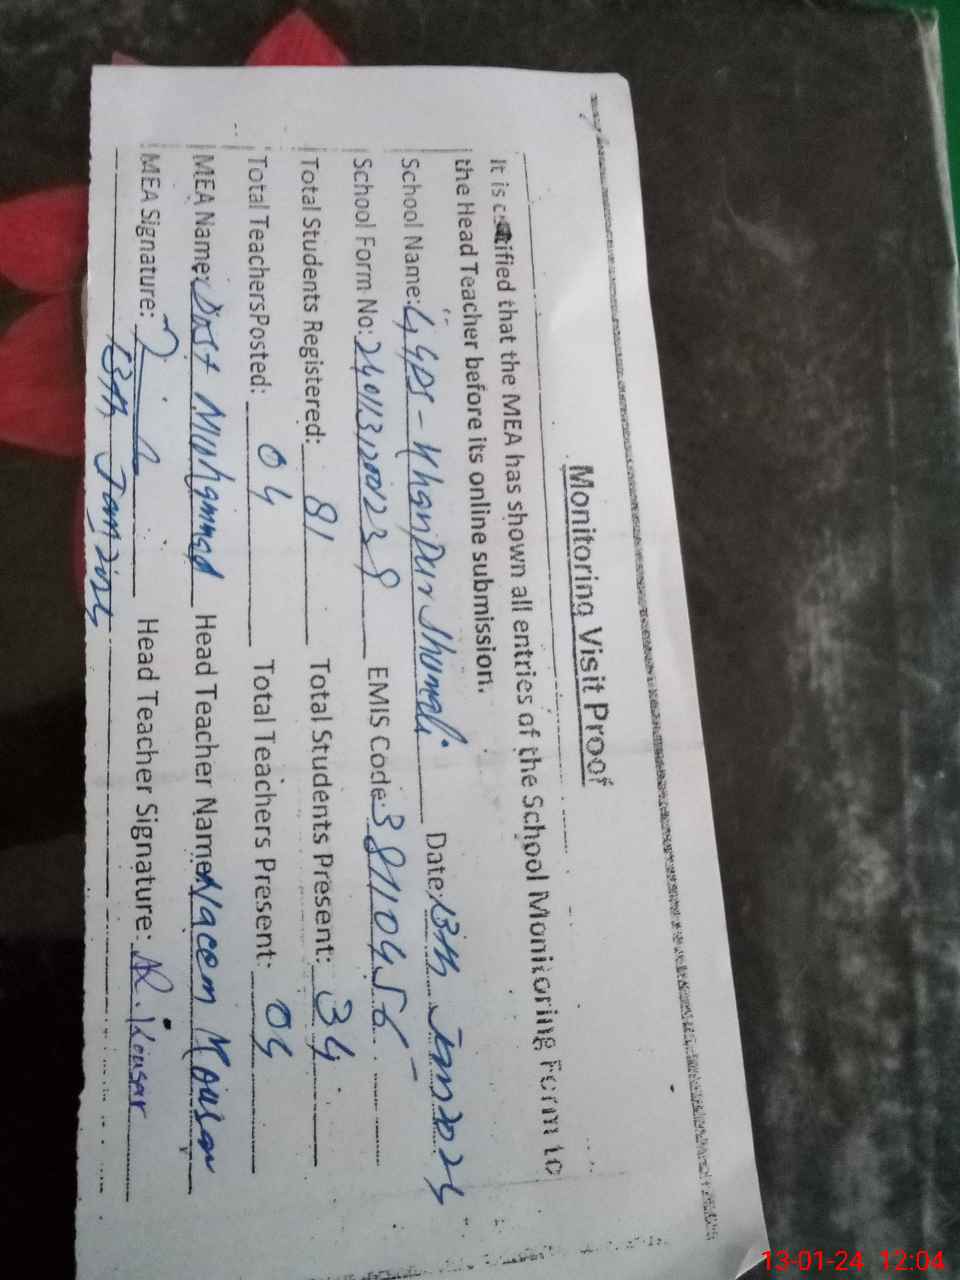 Monitoring Visit Proof
It is certified that the MEA has shown all entries of the School Monitoring Form to
the Head Teacher before its online submission.
School Name: GGPS - Khanpur Shumali Date: 13th Jan 2024
School Form No: EMIS Code: 38110456
Total Students Registered: 81 Total Students Present: 34
Total TeachersPosted: 04 Total Teachers Present: 04
MEA Name: Dost Muhammad Head Teacher Name: Naeem Kousar
MEA Signature: Head Teacher Signature: N. Kousar
13th Jan 2024
13-01-24 12:04